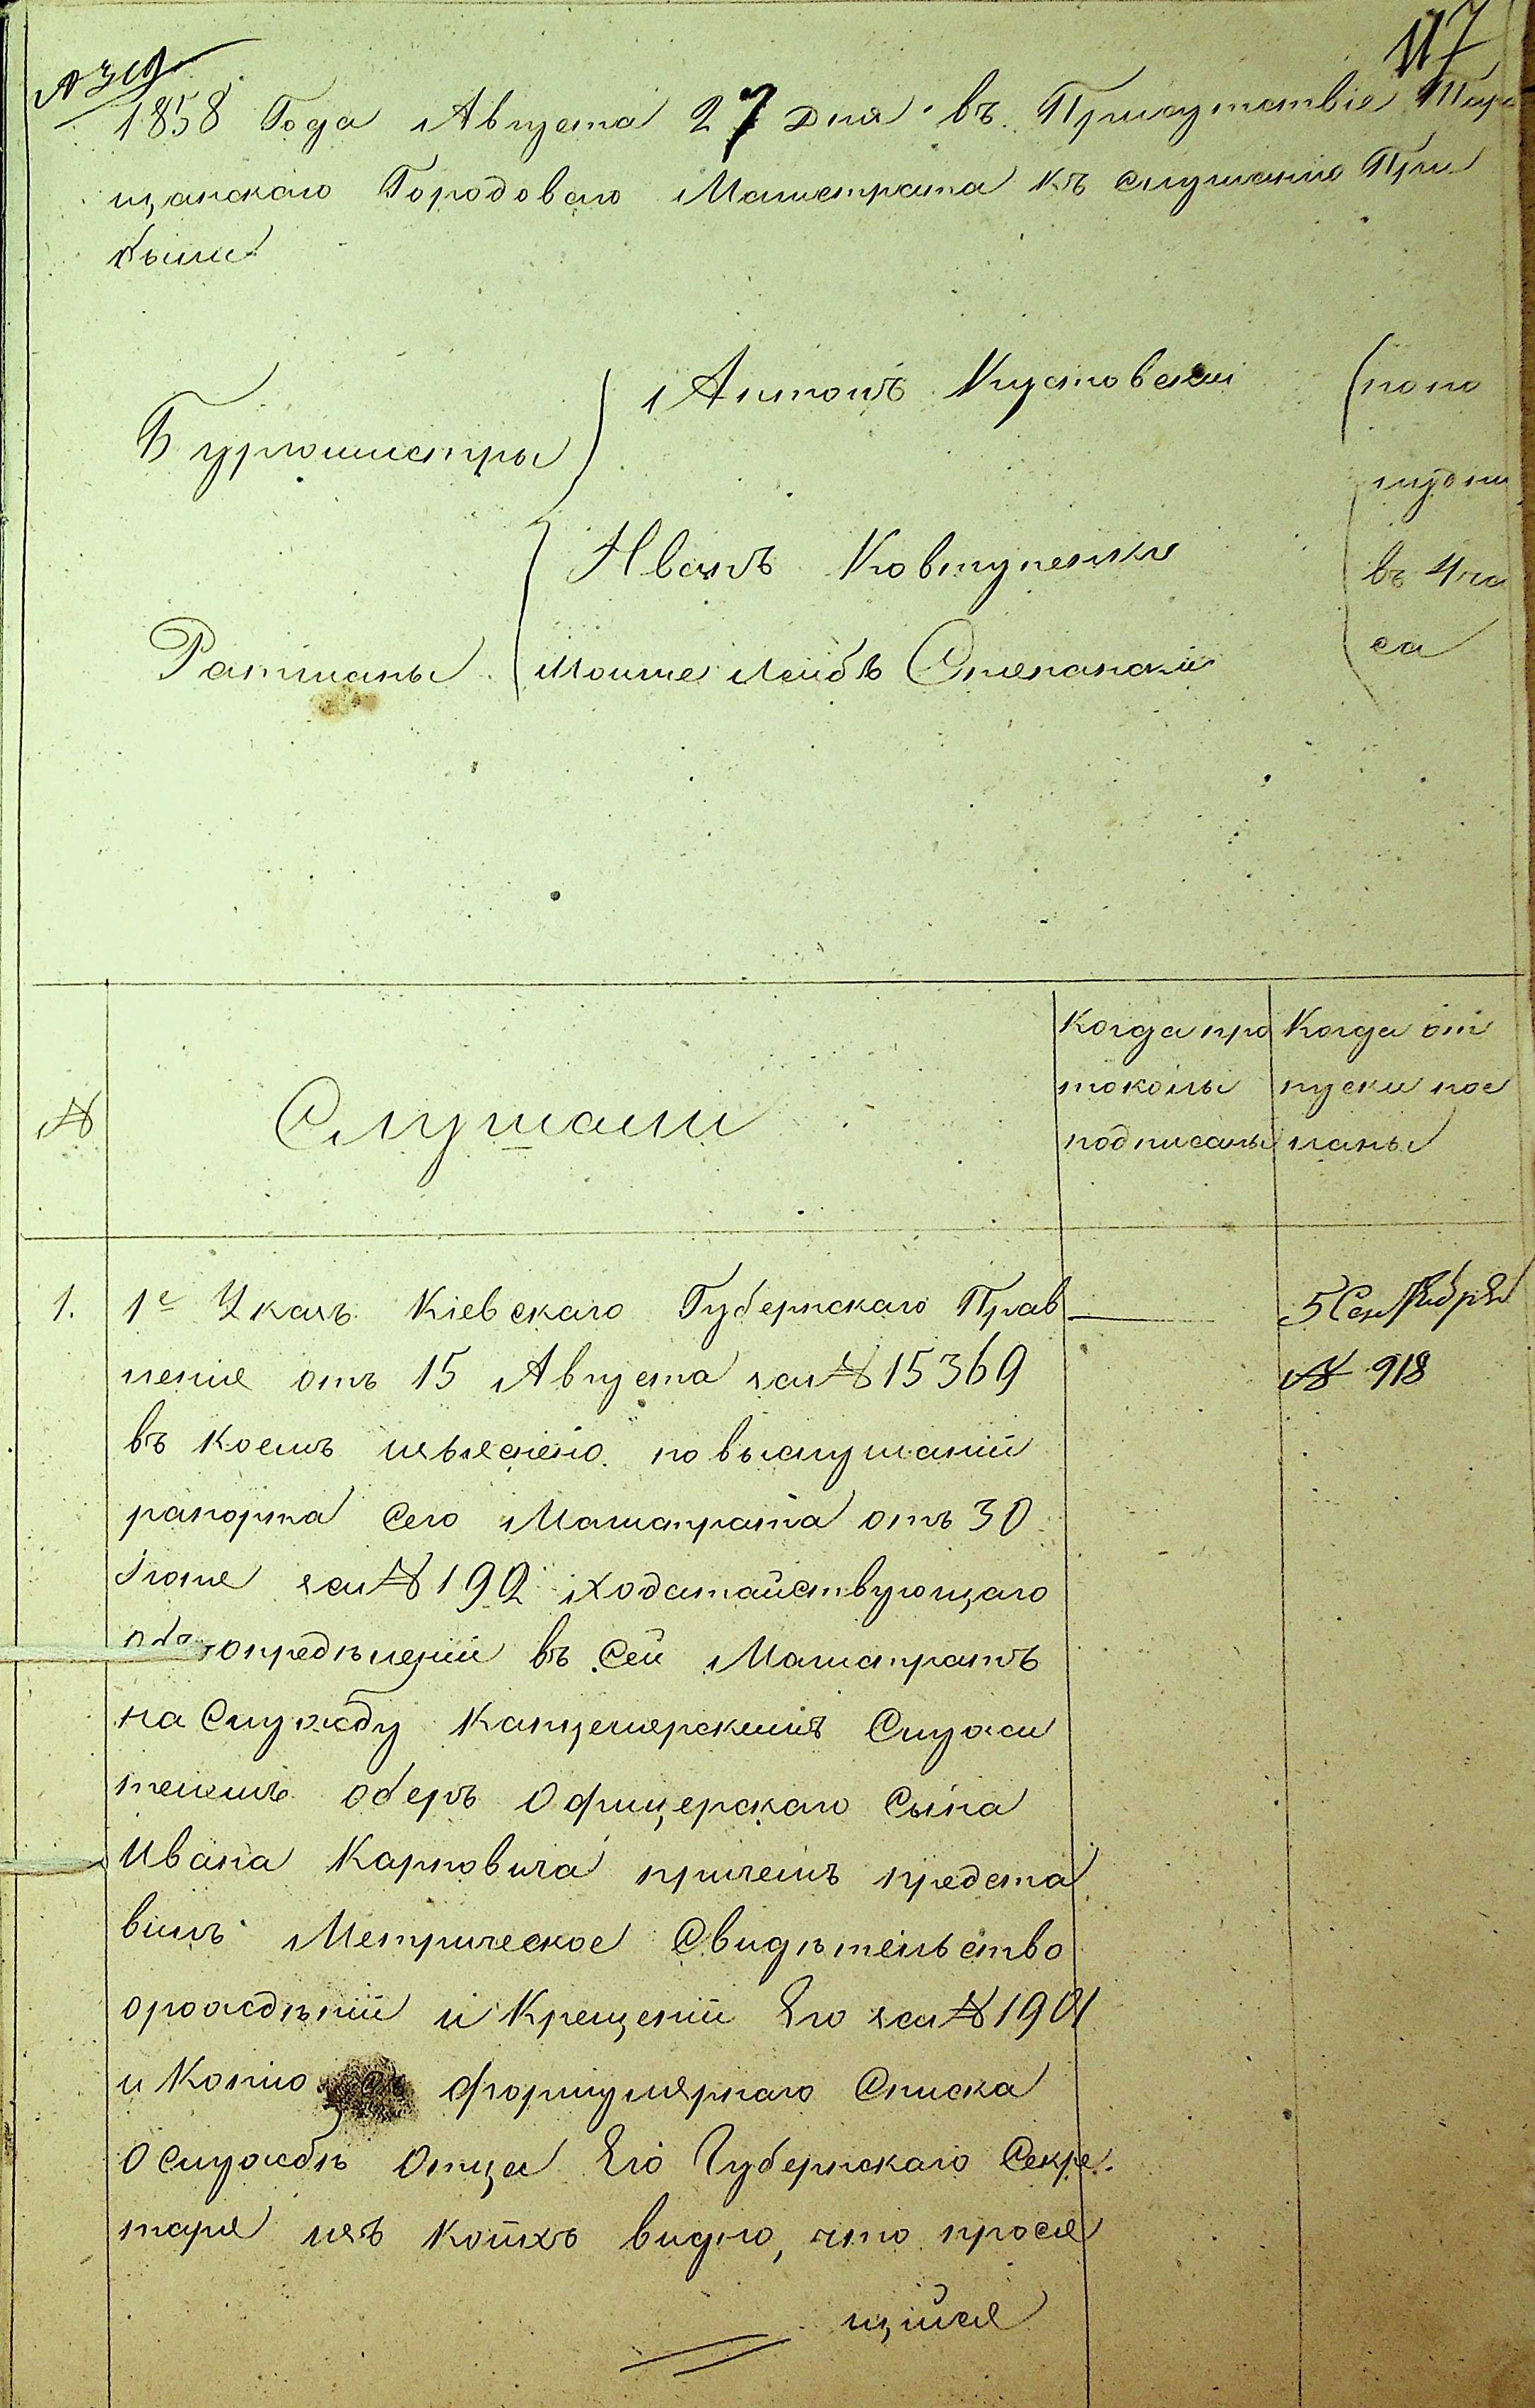 117
№ 319
1858 Года Августа 27 дня въ Присутствіе Тара
щанскаго Городоваго Магистрата къ слушанію При
были
Антонъ Кустовскій
Бургомистры
Иванъ Ковтуненко
Ратманы Мошке Лейбъ Степанскій
попо
лудни
въ 4 ча
са
№ Слушали
Когда про
токолы
подписаны
Когда от
пуски пос
ланы
1. 1е Указъ Кіевскаго Губернскаго Прав
ленія отъ 15 Августа за № 15369
въ коемъ изъяснено по выслушаніи
рапорта сего Магистрата отъ 30
Іюня за № 192 ходатайствующаго
опредѣленіи въ Сей Магистратъ
на Службу Канцелярскимъ Служи
телемъ Оберъ Офицерскаго Сына
Ивана Карповича причемъ предста
вилъ Метрическое Свидѣтельство
о рожденіи и Крещеніи Его за № 1901
и Копію съ формулярнаго Списка
о Службѣ Отца Его Губернскаго Секре
таря изъ коихъ видно, что прося
щійся
5 Сентября
№ 918